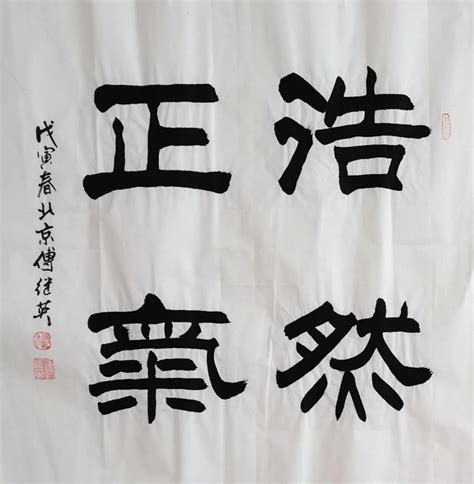 浩然
正氣
戊寅春北京傅继英